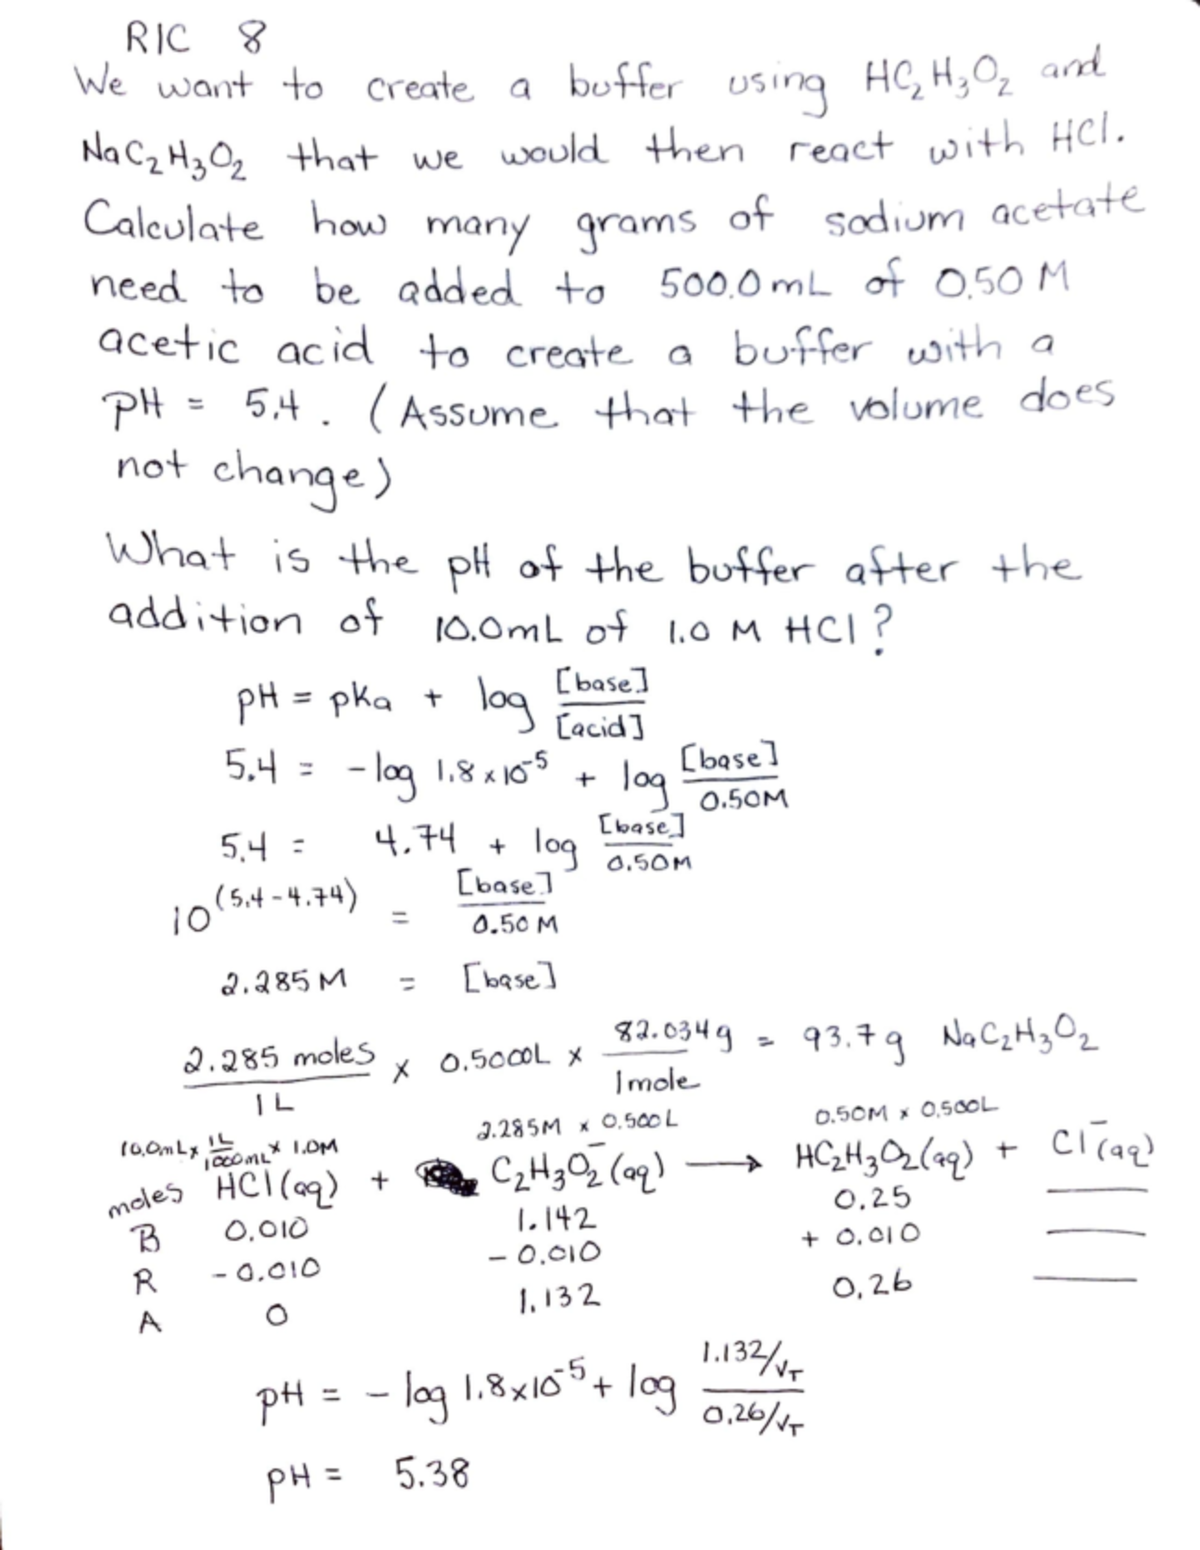 RIC 8
We want to create a buffer using HC₂H₃O₂ and
NaC₂H₃O₂ that we would then react with HCl.
Calculate how many grams of sodium acetate
need to be added to 500.0mL of 0.50 M
acetic acid to create a buffer with a
pH = 5.4. (Assume that the volume does
not change)
What is the pH of the buffer after the
addition of 10.0mL of 1.0 M HCl?
pH = pKa + log [base]/[acid]
5.4 = -log 1.8x10⁻⁵ + log [base]/0.50M
5.4 = 4.74 + log [base]/0.50M
10^(5.4-4.74) = [base]/0.50 M
2.285 M = [base]
2.285 moles/1 L x 0.5000L x 82.034g/1mole = 93.7g NaC₂H₃O₂
10.0mL x 1L/1000mL x 1.0M 2.285M x 0.500L 0.50M x 0.500L
moles HCl(aq) + C₂H₃O₂⁻(aq) → HC₂H₃O₂(aq) + Cl⁻(aq)
B 0.010 1.142 0.25 —
R -0.010 -0.010 + 0.010 —
A 0 1.132 0.26 —
pH = -log 1.8x10⁻⁵ + log 1.132/VT / 0.26/VT
pH = 5.38